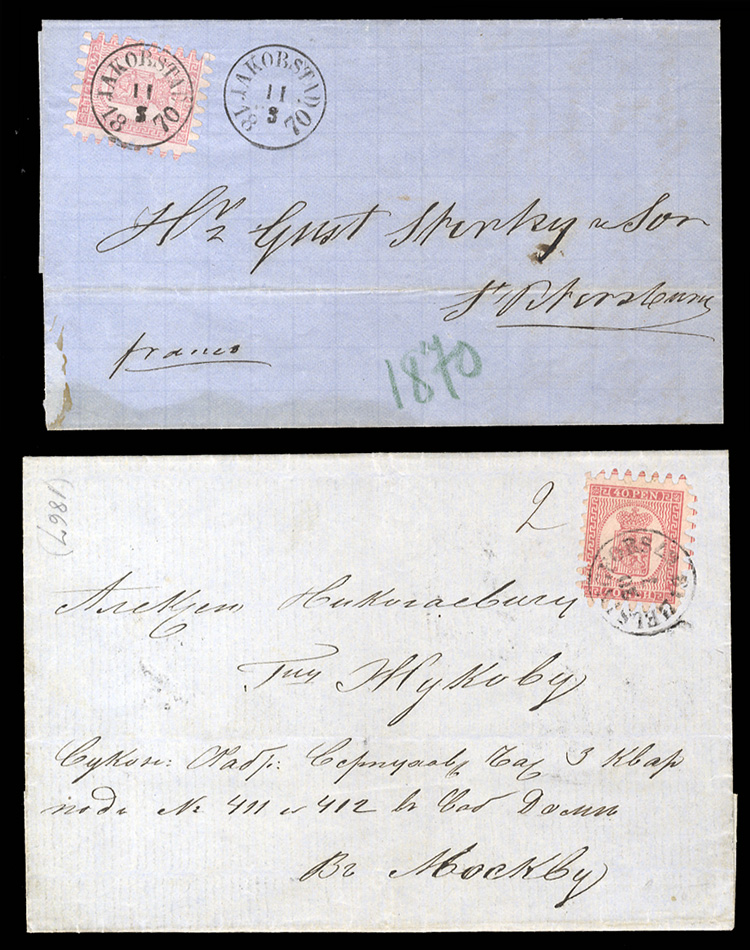 JAKOBSTAD
11
3
1870
JAKOBSTAD
11
3
1870
Hrz Gust Sterky & Son
St Petersburg
franco
1870
(1867)
2
40 PEN.
HELSINGFORS
Алексею Николаевичу
Гну Жукову
Сукон: Фабр: Серпуховс Час 3 Квар
подъ № 411 и 412 въ Соб Доми
Въ Москву